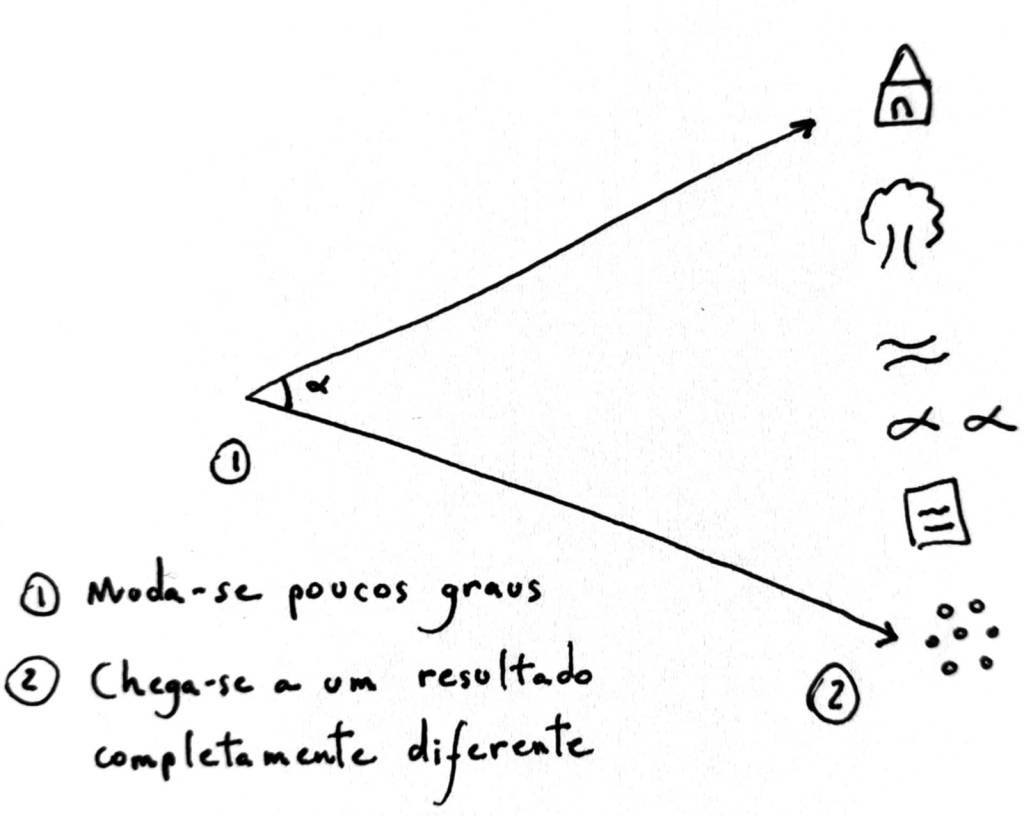 α
①
α α
②
① Muda-se poucos graus
② Chega-se a um resultado
completamente diferente